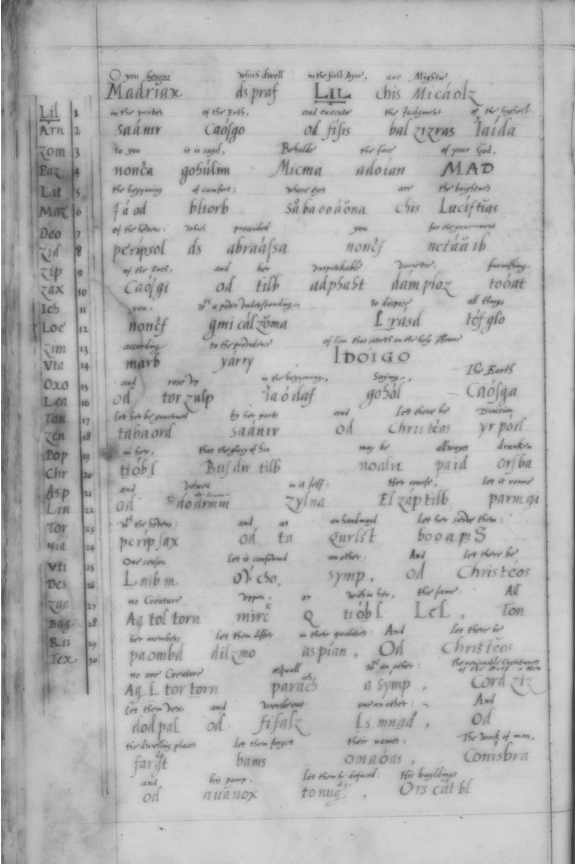 Lil 1
Arn 2
Zom 3
Paz 4
Lit 5
Maz 6
Deo 7
Zid 8
Zip 9
Zax 10
Ich 11
Loe 12
Zim 13
Vta 14
Oxo 15
Lea 16
Tan 17
Zen 18
Pop 19
Chr 20
Asp 21
Lin 22
Tor 23
Nia 24
Vti 25
Des 26
Zaa 27
Bag 28
Rii 29
Tex 30
O you heuens which dwell in the first Ayre, are Mightie
Madriax ds praf LIL chis Micáolz
in the partes of the Erth, and execute the Judgment of the highest:
saánir Caosgo od fisis bal zizras Iaida
to you it is sayd, Beholde the face of your God,
nonca gohúlim Micma adoian MAD
the begynning of comfort: whose eyes are the brightnes
Iá od bliorb sabaooáona chis Lucíftias
of the heuens: which prouided you for the gouernment
peripsol ds abraássa noncf netáaib
of the Erth, and her vnspeakable varietie, furnishing
Caosgi od tilb adphaht dámploz tooat
you wth a powr vnderstanding to dispose all things
noncf gmicálzoma Lrasd tófglo
according to the prouidence of him that sitteth on the holy Throne
marb yarry IDOIGO
and rose vp in the begynning, saying, The Earth
od torzulp iaódaf gohól Caósga
let her be gouerned by her parts and let there be Diuision
tabaord saánir od Christéos yrpóil
in her, that the glory of hir may be allwayes dronken
tióbl Busdir tilb noaln paid orsba
and vexed in it self: Her course, let it ronne
od dodrmni zylna Elzáptilb parm gi
wth the heuens: and as an handmayd let her serue them:
peripsax od ta qurlst booapiS
One season let it confownd an other: And let there be
Lnibm ovcho, symp, od Christéos
no Creature vppon, or within her, the same: All
Ag toltorn mirc Q tióbl Lel, Ton
her members let them differ in their qualities: And let there be
paombd dilzmo aspian, Od Christéos
no one Creature æquall wth an other: the reasonable Creatures of the Erth, or Men
Ag L tortorn parach asymp, Cordziz
let them vex and weede out one an other: And
dodpal od fifalz Lsmnad, Od
the dwelling places let them forget their names: The work of man,
fargt bams omaóas, Conisbra
and his pomp, let them be defaced: His buyldings
od auauox tonug, Orscátbl